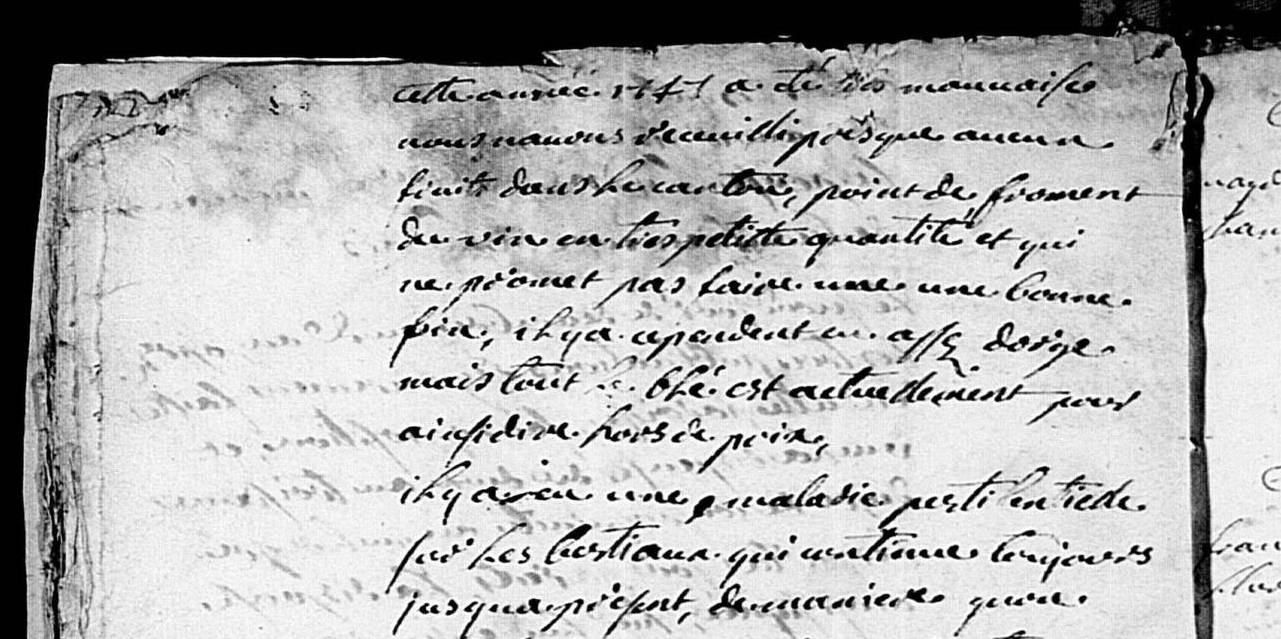 cette année 1747 a été très mauuaise
nous nauons recueilli presque aucun
fruits dans le canton, point de froment
du vin en tres petitte quantité et qui
ne promet pas faire une une bonne
fin, il y a cependent eu assez dorge
mais tout le blé est actuellement pour
ainsi dire hors de prix,
il y a eu une maladie pestilentielle
sur les bestiaux qui continue toujours
jusqua présent, de maniere quon